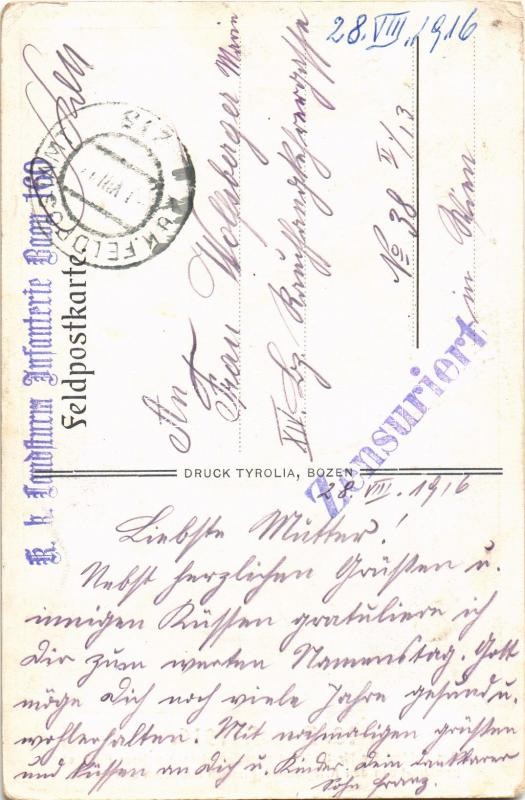 28. VIII. 1916
K. k. Landsturm Infanterie Baon 160
Feldpostkarte
K.u.K. FELDPOSTAMT
An
Frau Wolfsberger Marie
XIV. Bz
No 38 II/13
in Wien
Zensuriert
DRUCK TYROLIA, BOZEN
28 VIII. 1916
Liebste Mutter!
Nebst herzlichen Grüßen u.
innigen Küssen gratuliere ich
Dir zum werten Namenstag. Gott
möge Dich noch viele Jahre gesund u.
wohlerhalten. Mit nochmaligen grüßen
und küssen an Dich u. Kinder. Dein dankbarer
Sohn Franz.